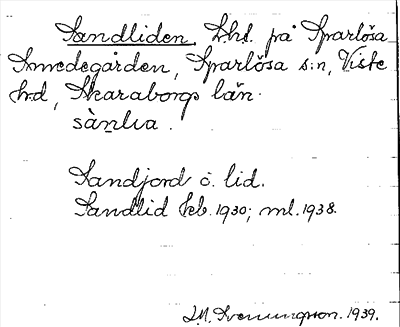 Sandliden, Lht. på Sparlösa
Smedegården, Sparlösa s:n, Viste
hd, Skaraborgs län.
sàn̠lıa.
Sandjord o. lid.
Sandlid Hcb. 1930; ml. 1938.
J.M. Svenungsson. 1939.